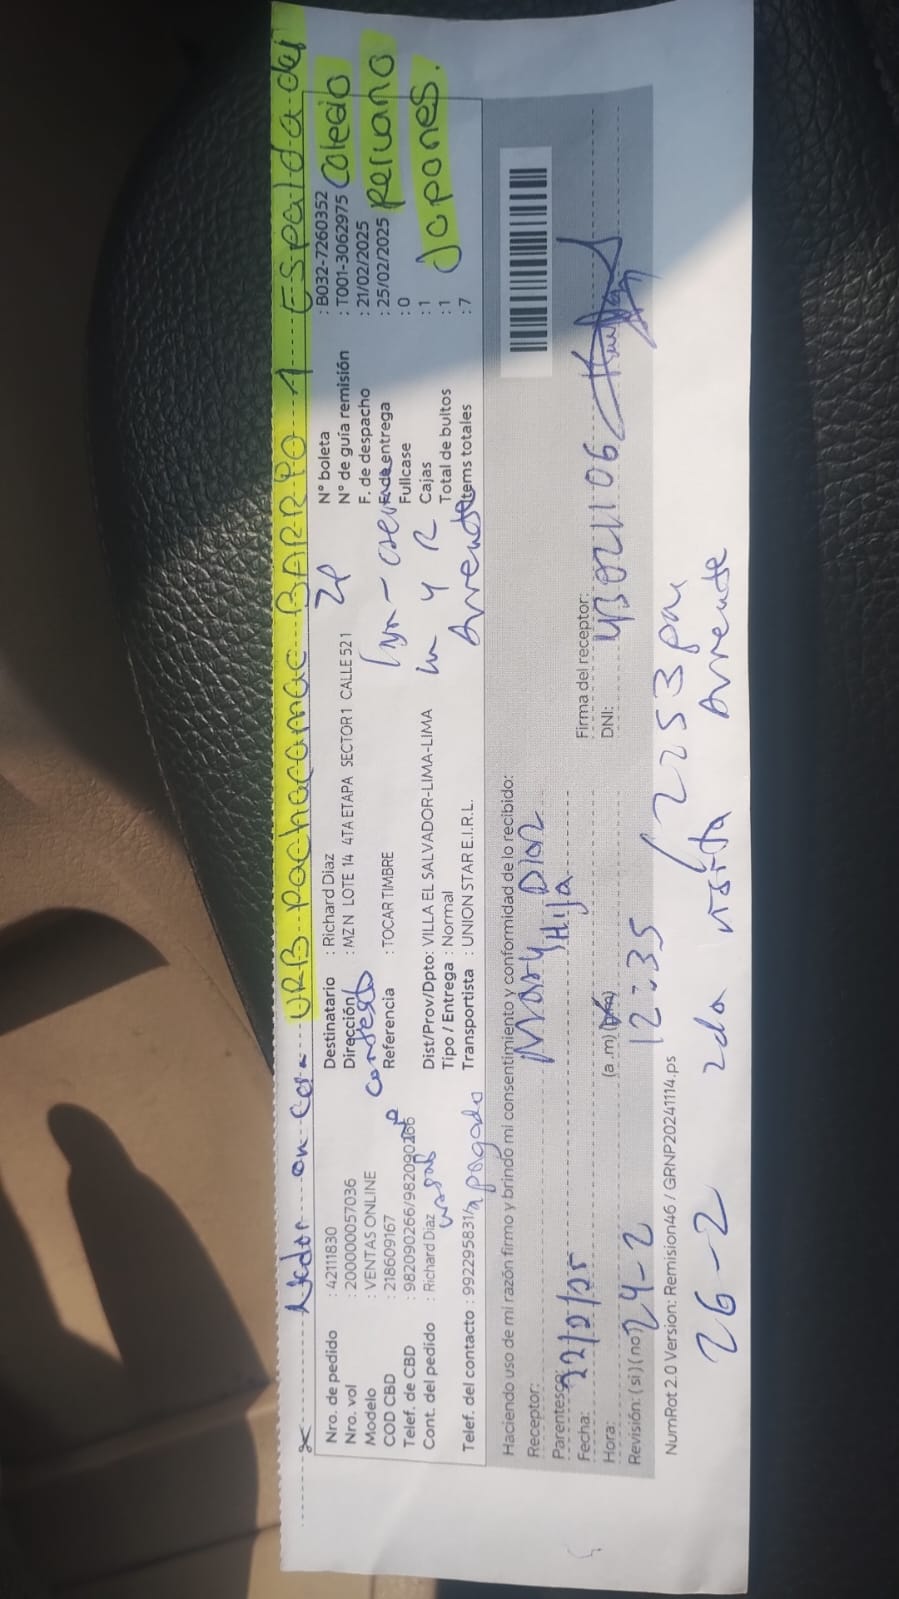 URB PACHACAMAC BARRIO 1 Espalda del
Colegio
peruano
Japones.
Nro. de pedido : 42111830
Nro. vol : 200000057036
Modelo : VENTAS ONLINE
COD CBD : 218609167
Telef. de CBD : 982090266/982090266
Cont. del pedido : Richard Diaz
Telef. del contacto : 992295831/
apagado
Destinatario : Richard Diaz
Dirección : MZ N LOTE 14 4TA ETAPA SECTOR 1 CALLE 521
contesto
Referencia : TOCAR TIMBRE
Dist/Prov/Dpto: VILLA EL SALVADOR-LIMA-LIMA
Tipo / Entrega : Normal
Transportista : UNION STAR E.I.R.L.
N° boleta : B032-7260352
N° de guía remisión : T001-3062975
F. de despacho : 21/02/2025
F. de entrega : 25/02/2025
Fullcase : 0
Cajas : 1
Total de bultos : 1
Items totales : 7
Haciendo uso de mi razón firmo y brindo mi consentimiento y conformidad de lo recibido:
Receptor: Mary Diaz
Parentesco: Hija
Fecha: 22/2/25
Hora: (a.m) (p.m)
Revisión: ( si ) ( no )
Firma del receptor:
DNI: 43021106
24-2 12:35
NumRot 2.0 Version: Remision46 / GRNP20241114.ps
26-2 2da visita